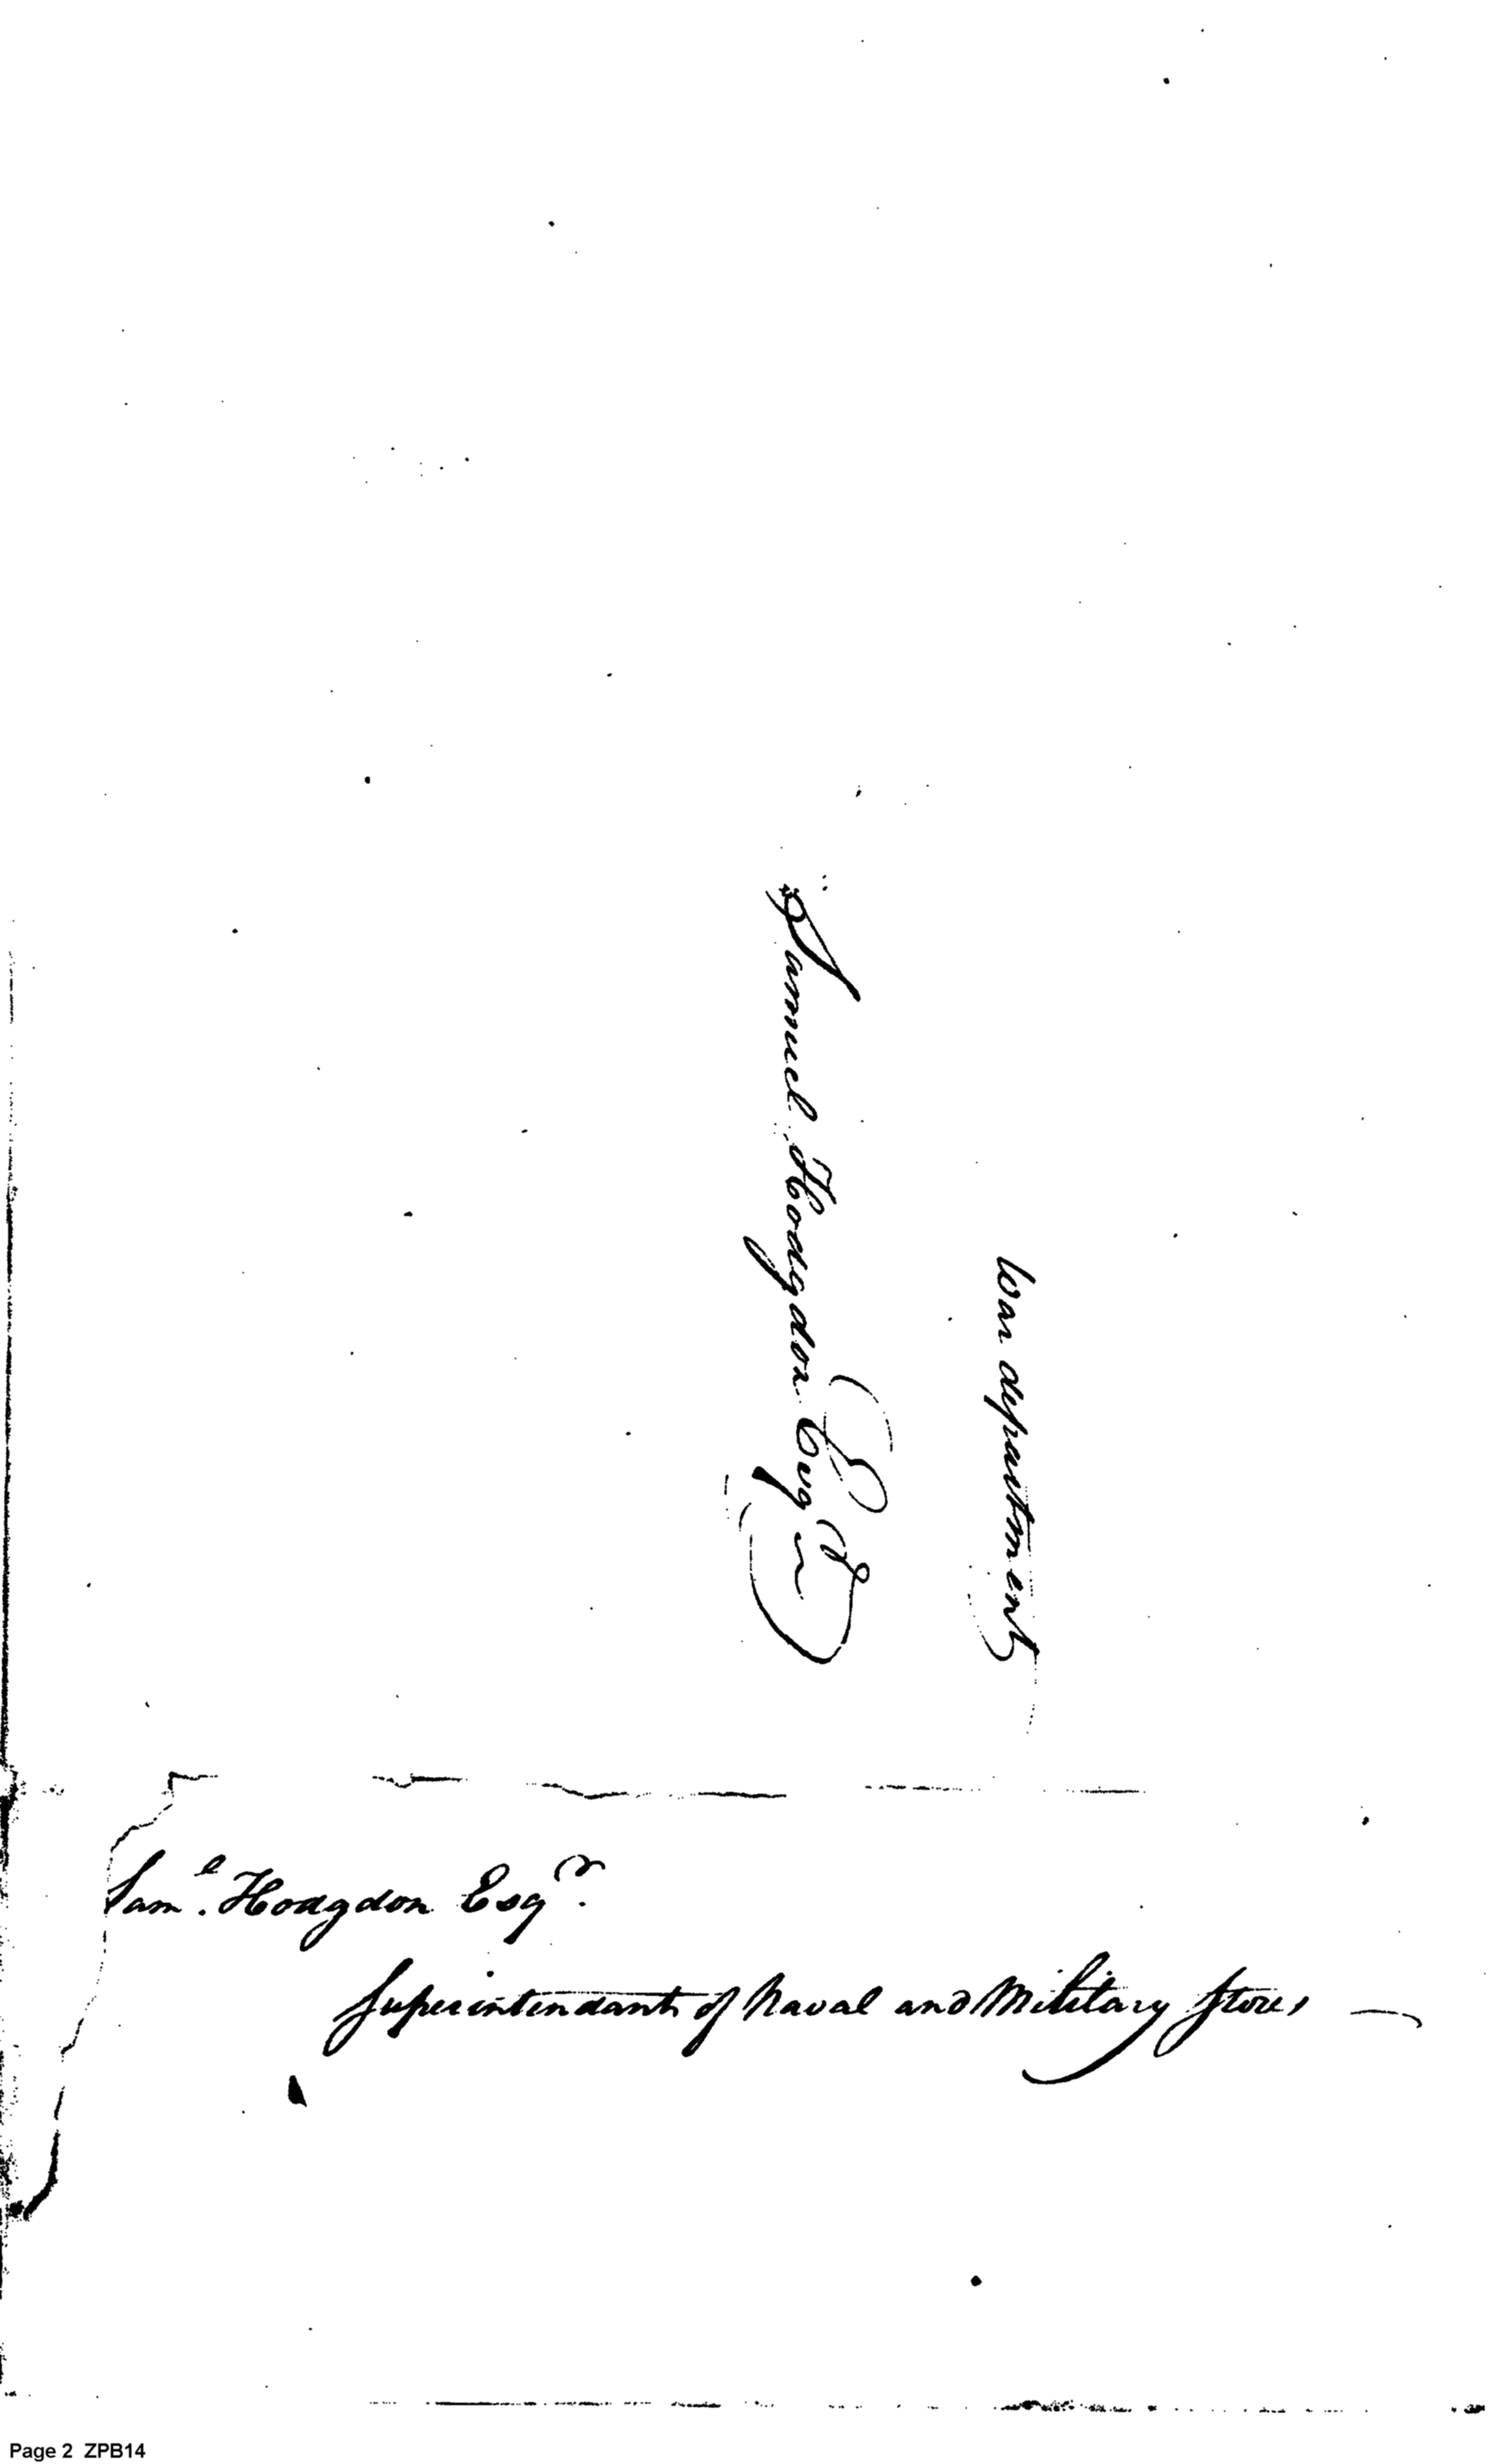 War department
Samuel Hodgdon Esqr
Saml. Hodgdon Esqr.
Superintendant of Naval and Military Stores —
Page 2 ZPB14